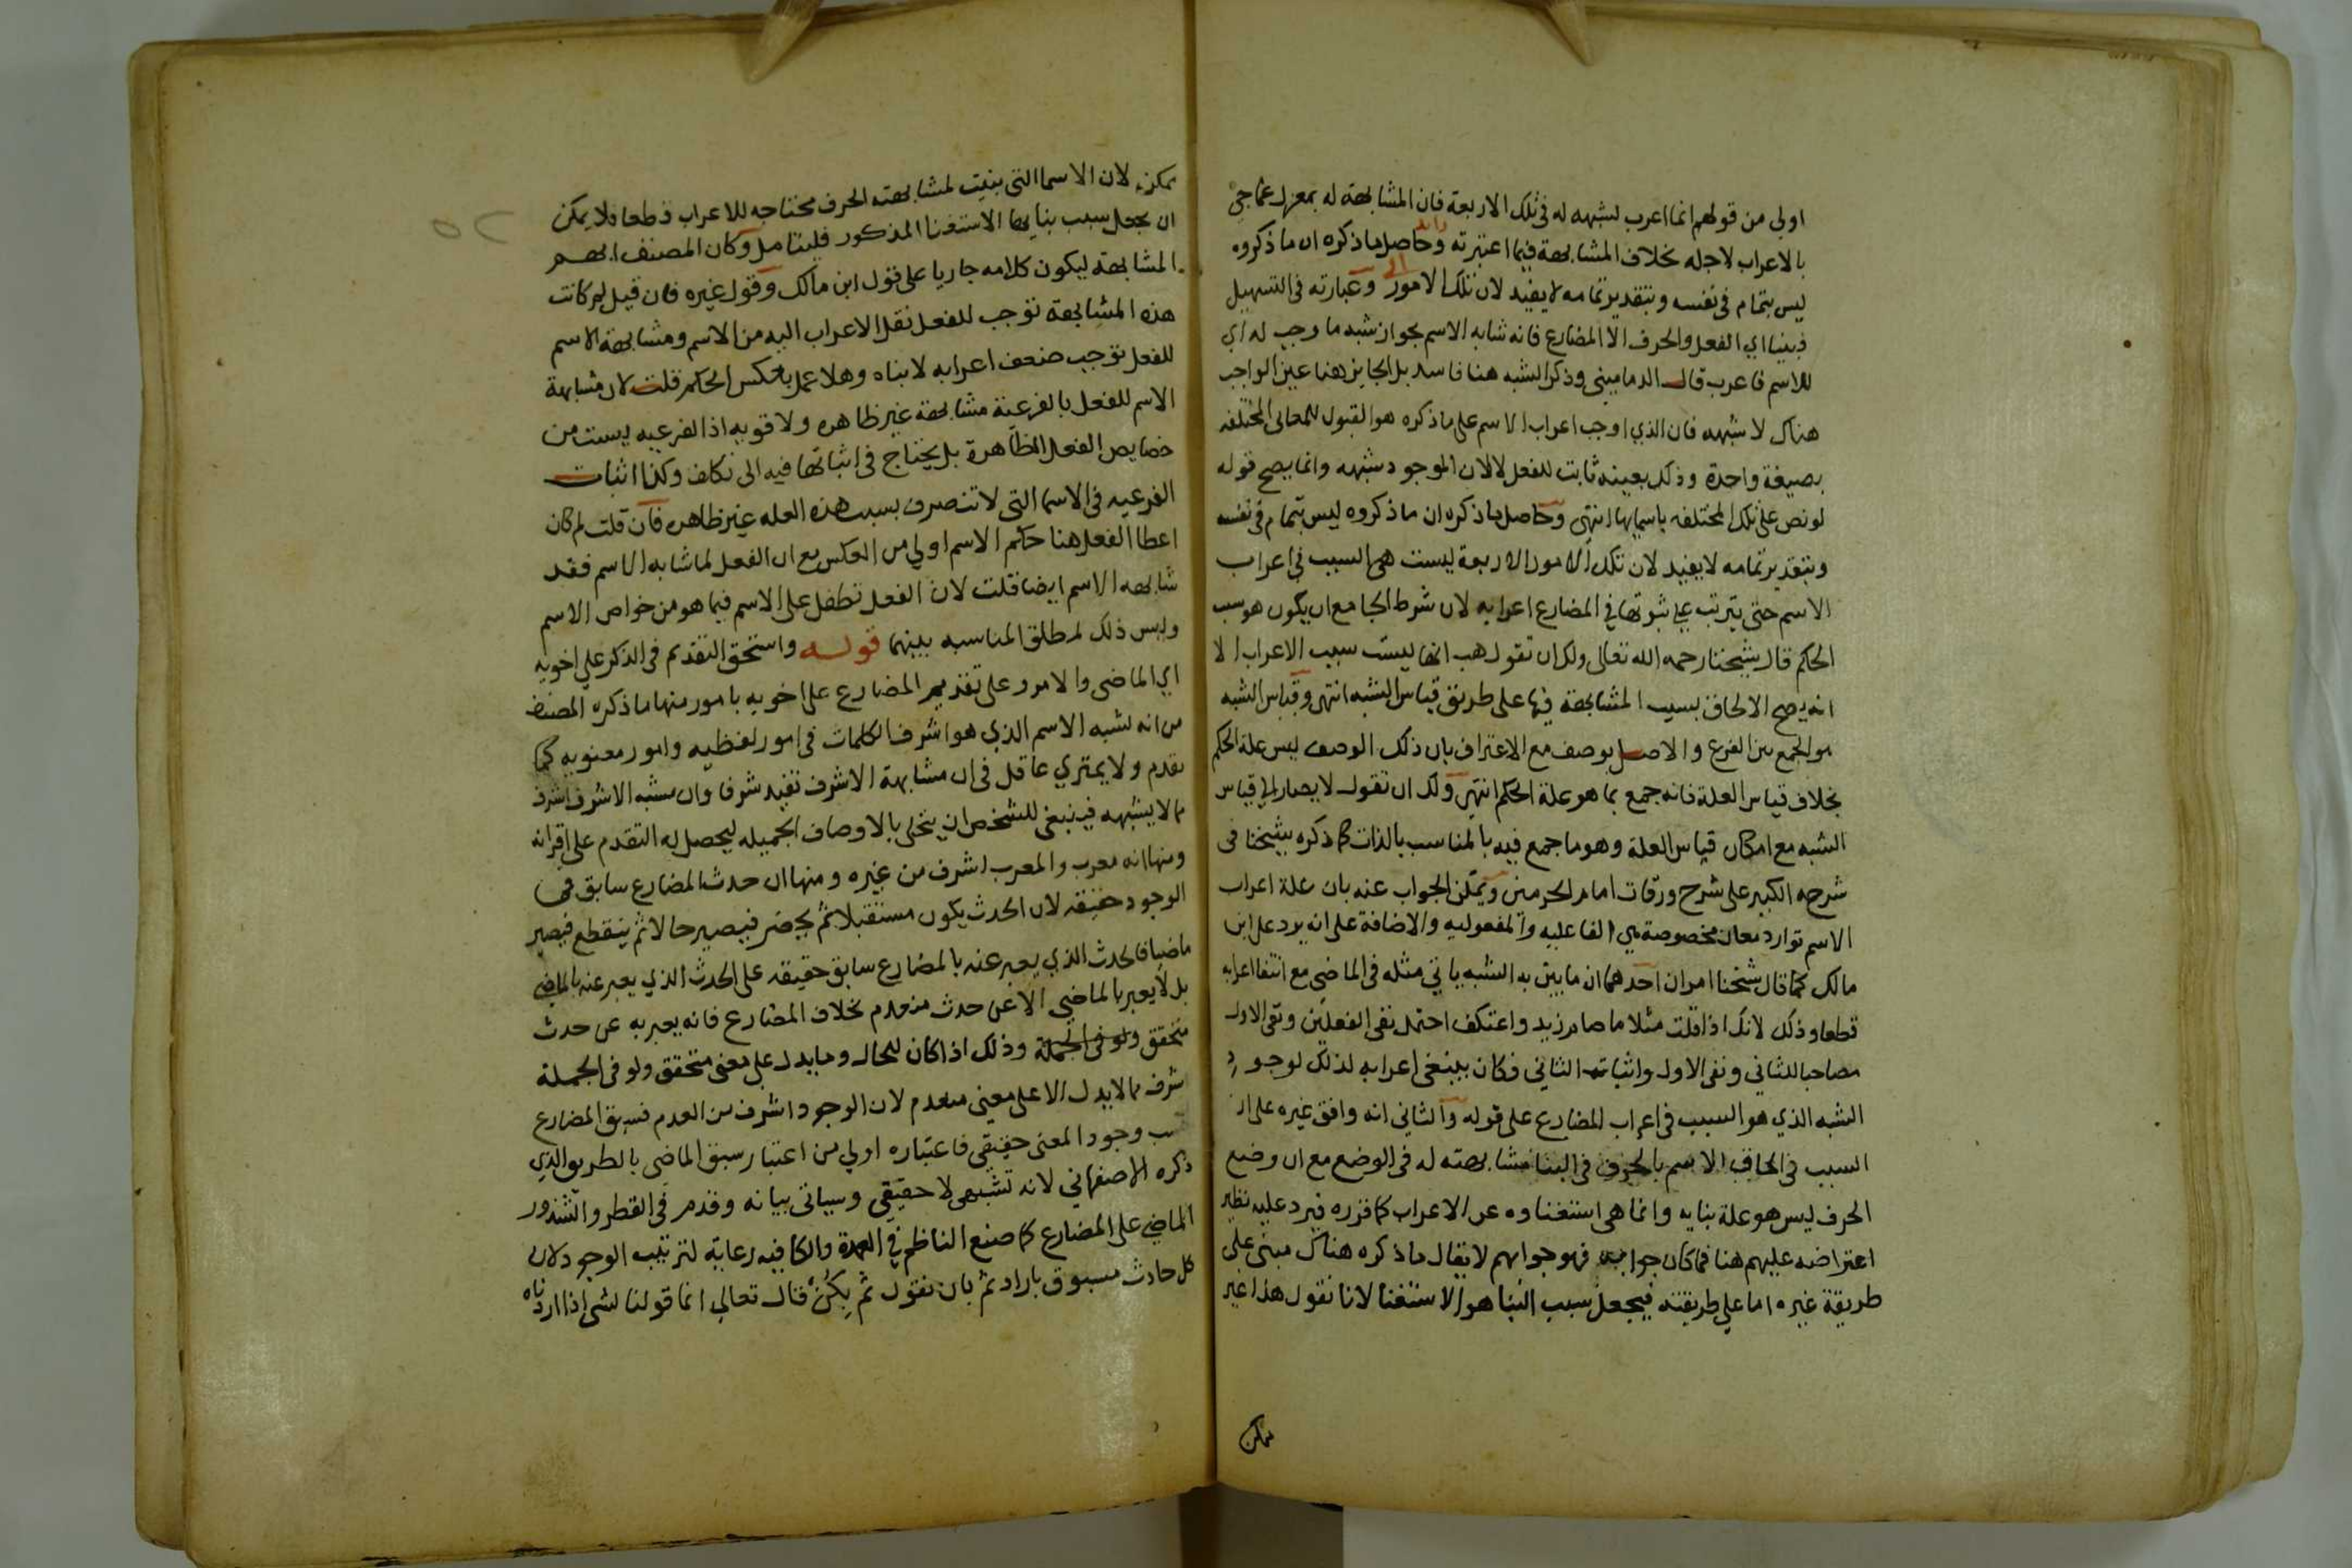 اولي من قولهم انما اعرب لشبهه له في تلك الاربعة فان المشابهة له بمعزل عما جي
بالاعراب لاجله بخلاف المشابهة فيما اعتبرته وحاصل ما ذكره ان ما ذكروه
ليس بتمام في نفسه وبتقدير تمامه لا يفيد لان تلك الامور وعبارته في التسهيل
فبنيا اي الفعل والحرف الا المضارع فانه شابه الاسم بجواز شبه ما وجب له اي
للاسم فاعرب قال الدماميني وذكر الشبه هنا فاسد بل الجايز هنا عين الواجب
هناك لا شبهه فان الذي اوجب اعراب الاسم على ما ذكره هو القبول للمعاني المختلفه
بصيغة واحدة وذلك بعينه ثابت للفعل لا لان الموجود شبهه وانما يصح قوله
لو نص على تلك المختلفه باسمايها انتهى وحاصل ما ذكره ان ما ذكروه ليس بتمام في نفسه
وبتقدير تمامه لا يفيد لان تلك الامور الاربعة ليست هي السبب في اعراب
الاسم حتى يترتب على ثبوتها في المضارع اعرابه لان شرط الجامع ان يكون هو سبب
الحكم قال شيخنا رحمه الله تعالى ولك ان تقول هب انها ليست سبب الاعراب الا
انه يصح الالحاق بسبب المشابهة فيها على طريق قياس الشبه انتهى وقياس الشبه
هو الجمع بين الفرع والاصل بوصف مع الاعتراف بان ذلك الوصف ليس علة الحكم
بخلاف قياس العلة فانه جمع بما هو علة الحكم انتهى ولك ان تقول لا يصار الي قياس
الشبه مع امكان قياس العلة وهو ما جمع فيه بالمناسب بالذات كما ذكره شيخنا في
شرحه الكبير على شرح ورقات امام الحرمين ويمكن الجواب عنه بان علة اعراب
الاسم توارد معان مخصوصة هي الفاعليه والمفعوليه والاضافة على انه يرد على ابن
مالك كما قال شيخنا امران احدهما ان ما بين به الشبه ياتي مثله في الماضي مع انتفا اعرابه
قطعا وذلك لانك اذا قلت مثلا ما صام زيد واعتكف احتمل نفي الفعلين ونفي الاول
مصاحبا للثاني ونفي الاول واثبات الثاني فكان ينبغي اعرابه لذلك لوجود
الشبه الذي هو السبب في اعراب المضارع على قوله والثاني انه وافق غيره على ان
السبب في الحاق الاسم بالحرف في البنا مشابهته له في الوضع مع ان وضع
الحرف ليس هو علة بنايه وانما هي استغناوه عن الاعراب كما قرره فيرد عليه نظير
اعتراضه عليهم هنا فما كان جوابه فهو جوابهم لا يقال ما ذكره هناك مبني على
طريقة غيره اما على طريقته فيجعل سبب البنا هو الاستغنا لانا نقول هذا غير
ممكن
ممكن لان الاسما التي بنيت لمشابهته الحرف محتاجه للاعراب قطعا فلا يمكن
ان يجعل سبب بنايها الاستغنا المذكور فليتامل وكان المصنف ابهم
المشابهة ليكون كلامه جاريا على قول ابن مالك وقول غيره فان قيل لم كانت
هذه المشابهة توجب للفعل نقل الاعراب اليه من الاسم ومشابهة الاسم
للفعل توجب ضعف اعرابه لا بناه وهلا عمل بعكس الحكم قلت لان مشابهة
الاسم للفعل بالفرعية مشابهة غير ظاهره ولا قويه اذ الفرعيه ليست من
خصايص الفعل الظاهرة بل يحتاج في اثباتها فيه الى تكلف وكذا اثبات
الفرعيه في الاسما التي لا تنصرف بسبب هذه العله غير ظاهره فان قلت لم كان
اعطا الفعل هنا حكم الاسم اولي من العكس مع ان الفعل لما شابه الاسم فقد
شابهه الاسم ايضا قلت لان الفعل تطفل على الاسم فيما هو من خواص الاسم
وليس ذلك لمطلق المناسبه بينهما قوله واستحق التقديم في الذكر على اخويه
اي الماضي والامر وعلى تقديم المضارع على اخويه بامور منها ما ذكره المصنف
من انه لشبه الاسم الذي هو اشرف الكلمات في امور لفظيه وامور معنويه كما
تقدم ولا يمتري عاقل في ان مشابهة الاشرف تفيد شرفا وان مشبه الاشرف اشرف
مما لا يشبهه فينبغي للشخص ان يتحلى بالاوصاف الجميله ليحصل له التقدم على اقرانه
ومنها انه معرب والمعرب اشرف من غيره ومنها ان حدث المضارع سابق في
الوجود حقيقه لان الحدث يكون مستقبلا ثم يحضر فيصير حالا ثم ينقطع فيصير
ماضيا فالحدث الذي يعبر عنه بالمضارع سابق حقيقه على الحدث الذي يعبر عنه بالماضي
بل لا يعبر بالماضي الا عن حدث منعدم بخلاف المضارع فانه يعبر به عن حدث
متحقق ولو في الجملة وذلك اذا كان للحال وما يدل على معنى متحقق ولو في الجملة
اشرف مما لا يدل الا على معنى منعدم لان الوجود اشرف من العدم فسبق المضارع
وجود المعنى حقيقي فاعتباره اولي من اعتبار سبق الماضي بالطريق الذي
ذكره الاصفهاني لانه تشبيهي لا حقيقي وسياتي بيانه وقدم في القطر والشذور
الماضي على المضارع كما صنع الناظم في العمدة والكافيه رعاية لترتيب الوجود لان
كل حادث مسبوق باراد ثم بان نقول ثم يكن قال تعالي انما قولنا لشي اذا اردناه